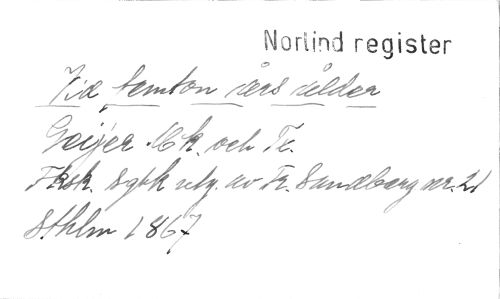 Norlind register
Vid femton års ålder
Geijer. Ck. och Tr.
Fksk. sgbk utg. av Fr. Sandberg nr. 21
Sthlm 1867